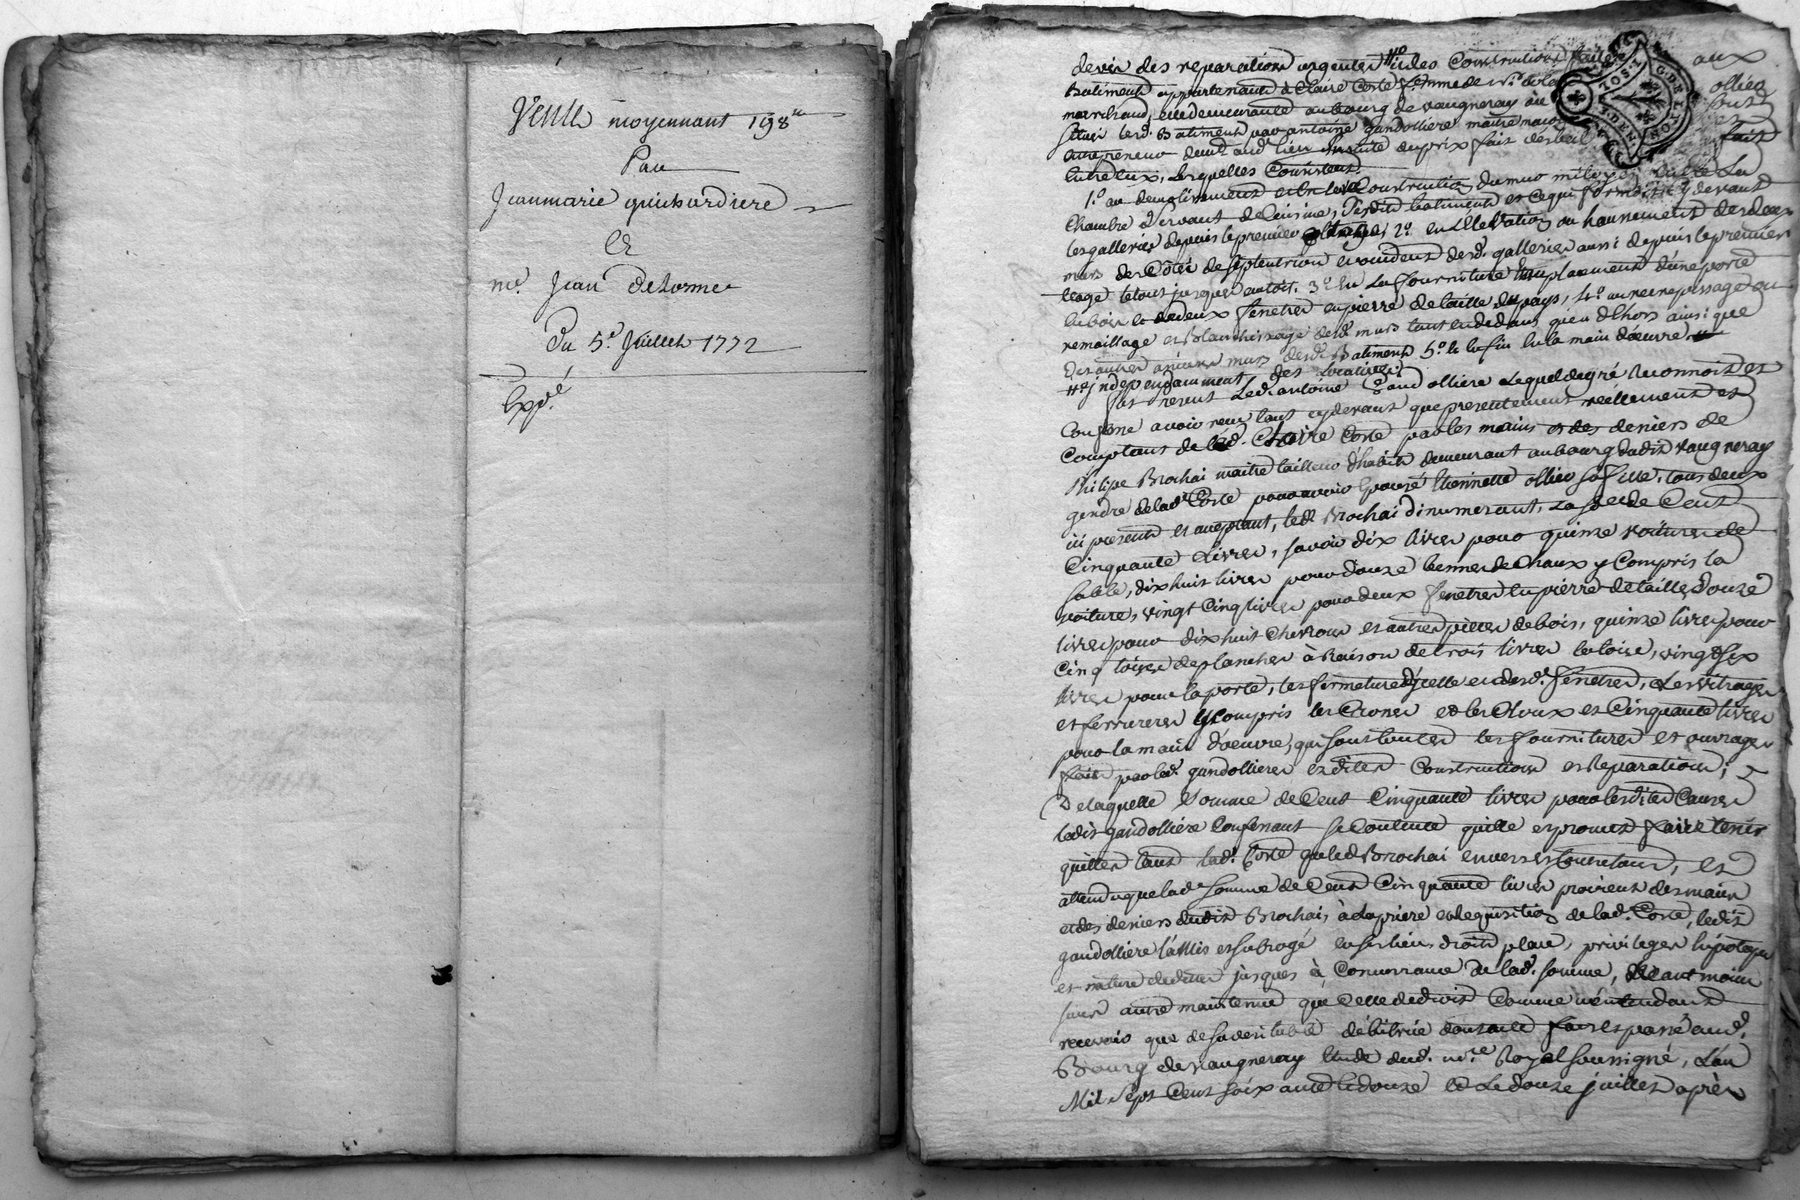 Vente moyennant 198 ₶
Par
Jeanmarie guichardiere
A
me. Jean delorme
Du 5e. Juillet 1772
Expé.
devis des reparations urgentes # et des Constructions faites aux
Batiments appartenants a Claire Coste femme de ollier
marchand, elle demeurante au bourg de vaugneray ou sont
situés lesd. Batiments par antoine gandolliere maitre maçon et
entrepreneur demt. aud. lieu ensuite du prix fait fait
entre eux, lesquelles Consistent
1.° au demolissement et en la Construction du mur
Chambre servant de Cuisine, dudit batiment et ce qui formoit cy devant
les galleries depuis le premier etage, 2.° en l'Elevation ou haussement des deux
murs de Côté de septentrion et occident desd. galleries aussi depuis le premier
etage le tout jusques au toit. 3.° en la fourniture Emplacement d'une porte
en bois et de deux fenetres en pierre de taille du pays, 4.° au
remaillage et Blanchissage desd. murs tant en dedans qu'en dehors ainsi que
des autres anciens murs desd. Batiments 5.° et enfin en la main d'œuvre #
# independamment des locatives
fut present Led. antoine gandolliere Lequel de gré Reconnoit et
Confesse avoir reçu tant cy devant que presentement reéllement et
Comptant de lad. Claire Coste par les mains et des deniers de
Philipe Brochai maitre tailleur d'habits demeurant au bourg dudit vaugneray
gendre de lad. Coste pour avoir Epousé Etiennette ollier sa fille, tous deux
ici presents et acceptant, led. Brochai La so.e de Cent
Cinquante Livres, savoir dix livres pour quinze voitures de
sable, dix huit livres pour douze bennes de Chaux y Compris la
voiture, vingt Cinq livres pour deux fenetres en pierre de taille, Douze
livres pour dix huit Chevrons et autres pieces de bois, quinze livres pour
Cinq toises de plancher à Raison de trois livres la toise, vingt six
livres pour la porte, les fermetures d'jcelle et desd. fenetres, Les vitrages
et ferrures y Compris les et les Cloux et Cinquante livres
pour la main d'oeuvre, qui sont toutes les fournitures et ouvrages
faits par led. gandolliere esdites Constructions et Reparations;
De laquelle somme de Cent Cinquante livres pour lesdites Causes
ledit gandolliere Confessant se Contente quitte et promet faire tenir
quittes tant lad. Coste que led. Brochai envers et Contre tous, et
attendu que lad. somme de Cent Cinquante livres provient des mains
et des deniers dudit Brochai, à la priere et Requisition de lad. Coste, ledit
gandolliere l'a Mis et subrogé en ses lieu, droits, place, privileges hipoteque
et nature de dette jusques à Concurrance de lad. somme, Neantmoins
sans autre maintenue que Celle de droit Comme n'entendant
recevoir que de sa veritable débitrice dont acte fait et passé aud.
Bourg de Vaugneray Etude dud. no.re Royal soussigné, L'an
Mil sept Cent soixante et douze et Le douze juillet après